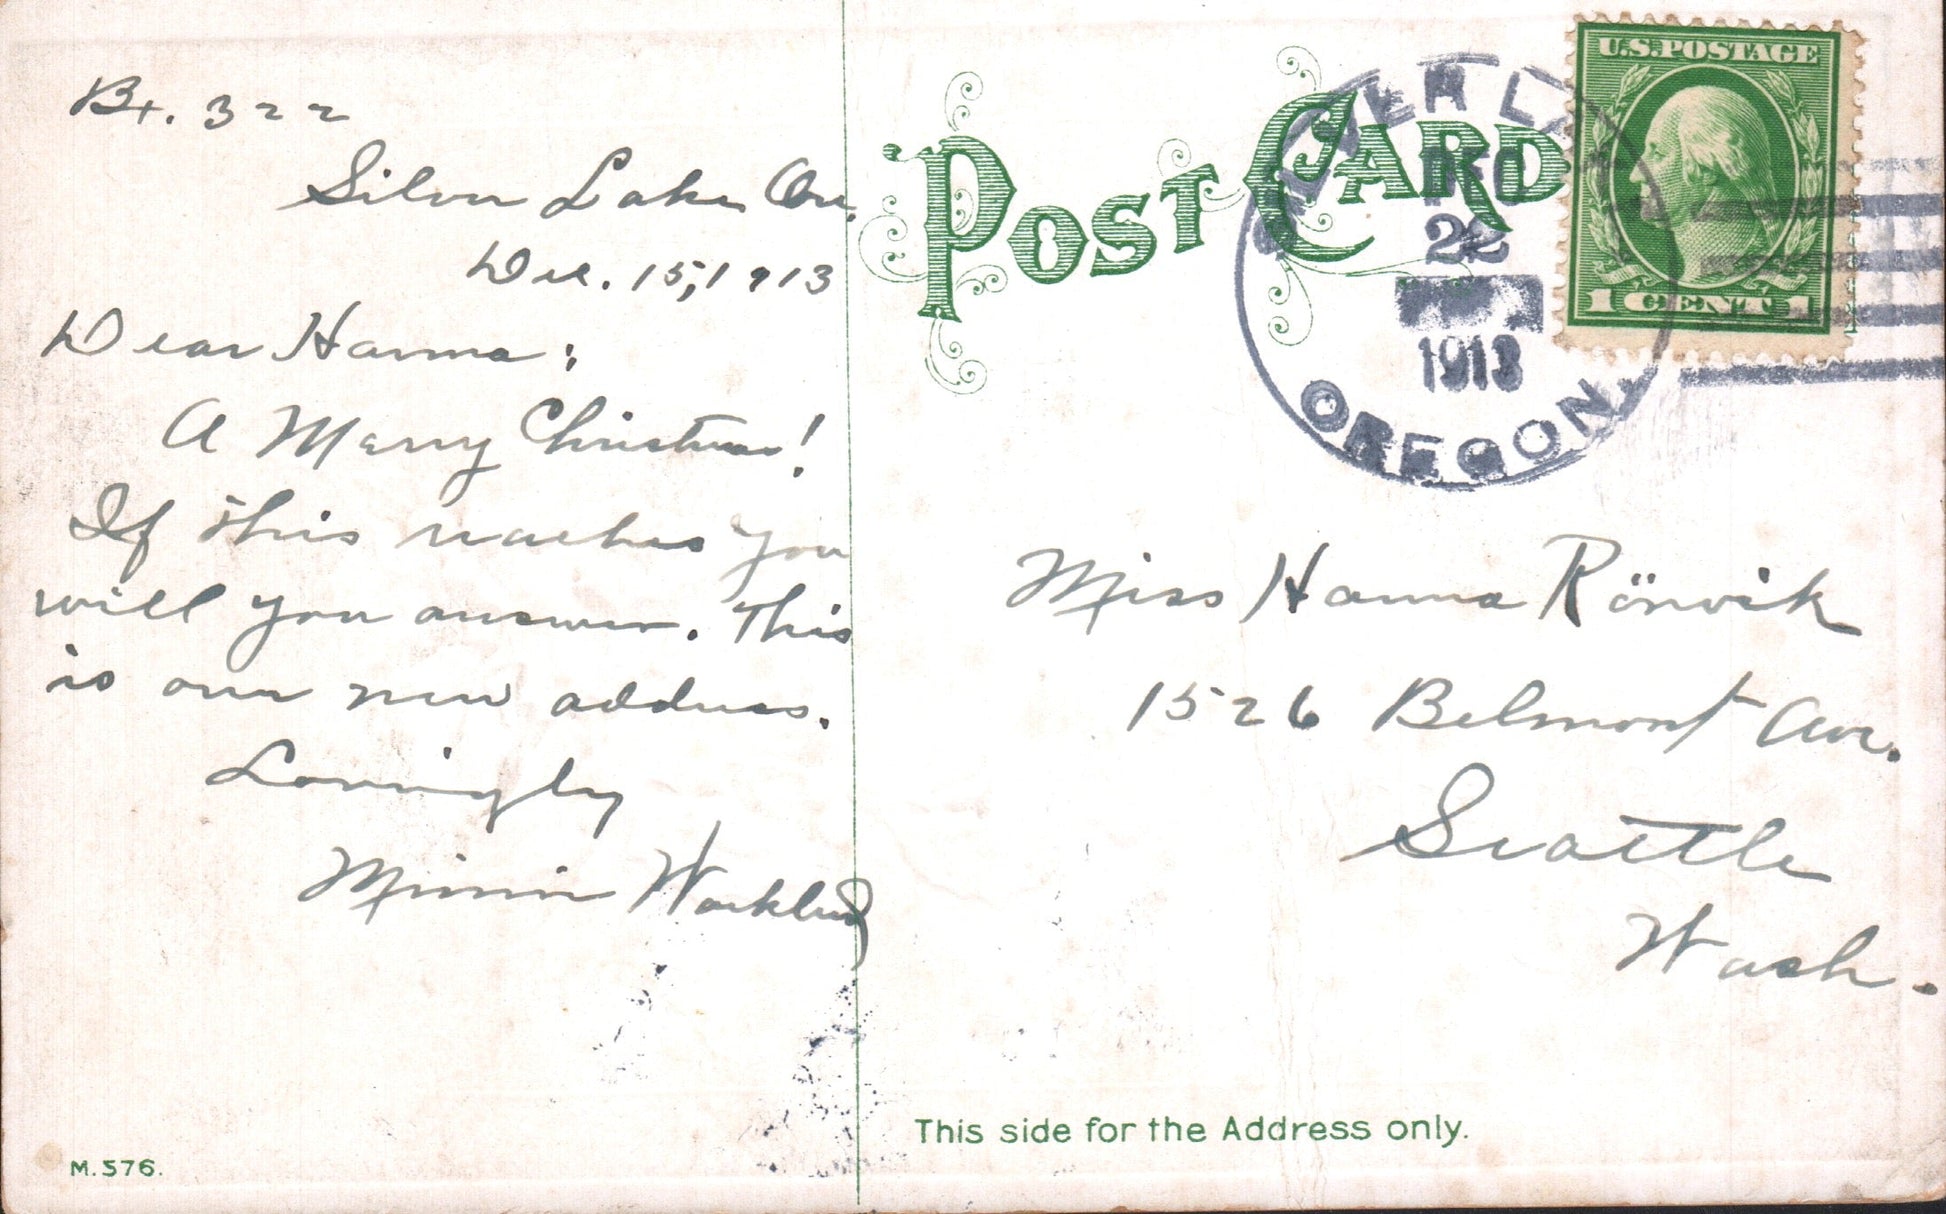 Bx. 322
Silver Lake, Ore.
Dec. 15, 1913
Dear Hanna:
A Merry Christmas!
If this reaches you
will you answer. This
is our new address.
Lovingly
Minnie
M. 576.
POST CARD
SILVER LA
DEC
22
1913
OREGON.
U.S. POSTAGE
1 CENT 1
Miss Hanna Rönvik
1526 Belmont Ave.
Seattle
Wash.
This side for the Address only.